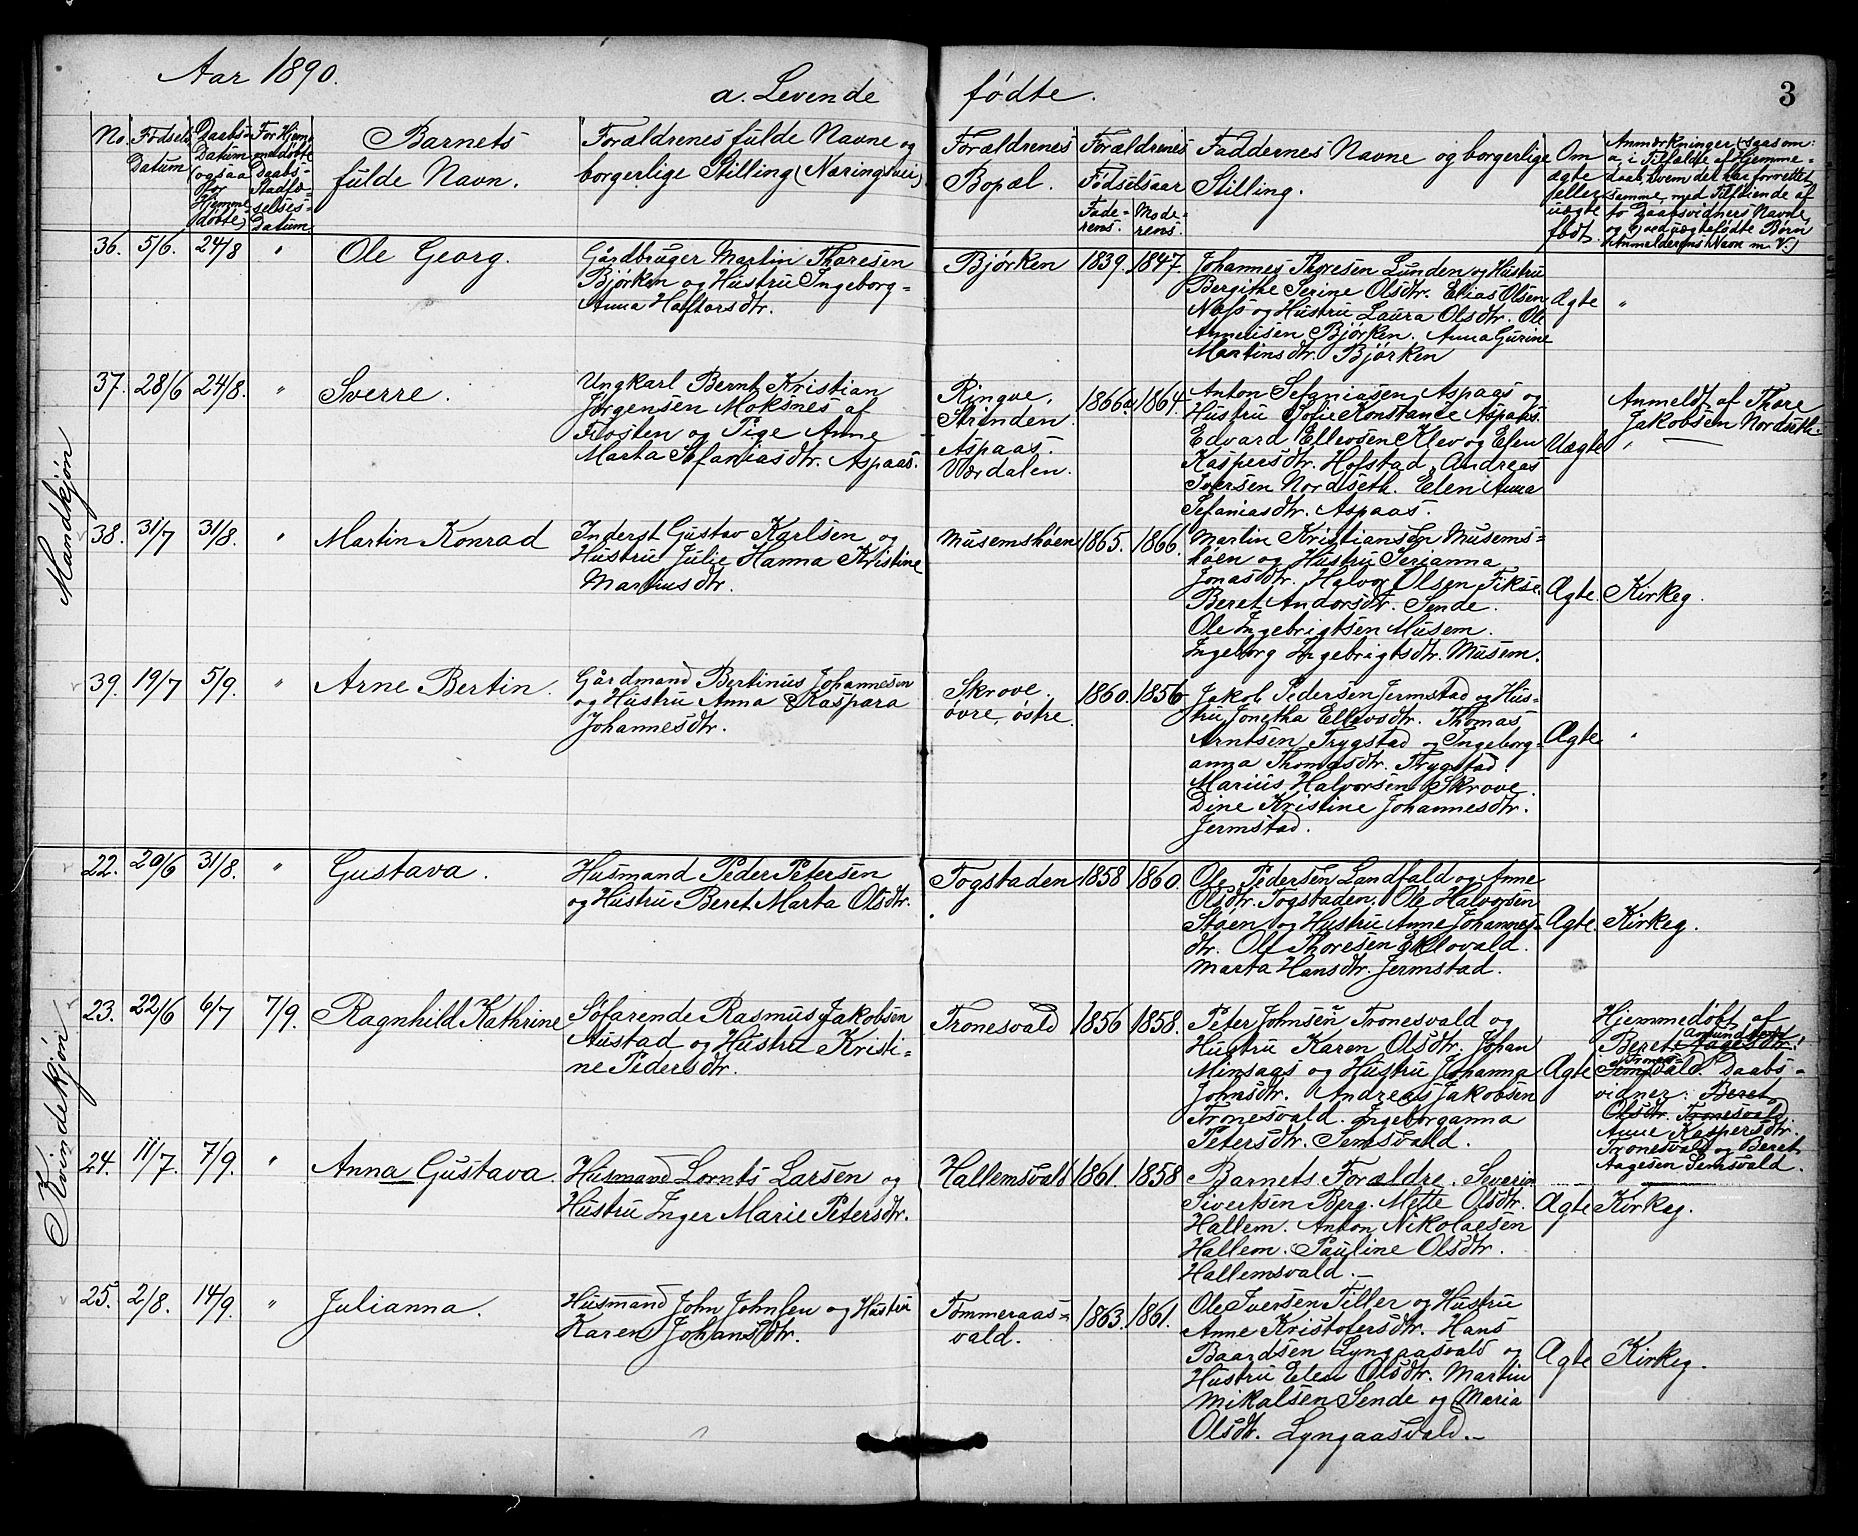 Aar 1890.
a. Levende fødte.
3
No.
Fødsels
Datum
Daabs-
Datum
(ogsaa
for
Hjemme
døbte)
For Hjem
medøbte
Daabs-
Stadfæ-
selses-
Datum
Barnets
fulde Navn.
Forældrenes fulde Navne og
borgerlige Stilling (Næringsvei).
Forældrenes
Bopæl.
Forældrenes
Fødselsaar
Fade-
rens.
Mode-
rens.
Faddernes Navne og borgerlige
Stilling.
Om
ægte
eller
uægte
født.
Anmærkninger (saasom:
a, i Tilfælde af Hjemme-
daab, hvem der har forrettet
samme, med Tilføiende af
to Daabsvidners Navne,
og b, ved uægtefødte Børn
Anmelderens Navn m. V.)
Mandkjøn
36. 5/6. 24/8 "
Ole Georg.
Gårdbruger Martin Thoresen
Bjørken og Hustru Ingeborg-
Anna Haftorsdtr.
Bjørken
1839. 1847.
Johannes Thoresen Lunden og Hustru
Bergithe Serine Olsdtr. Elias Olsen
Næss og Hustru Laura Olsdtr. Ole
Bjørken. Anna Gurine
Martinsdtr. Bjørken
Ægte "
37. 28/6 24/8. "
Sverre.
Ungkarl Bernt Kristian
Jørgensen Moksnes af
Frosten og Pige Anne
Marta Sefaniasdtr. Aspaas.
Ringve,
Strinden
Aspaas.
Værdalen.
1866 1864.
Anton Sefaniasen Aspaas og
Hustru Sofie Konstance Aspaas.
Edvard Ellevsen Klev og Elen
Kaspersdtr. Hofstad. Andreas
Iversen Nordseth. Elen Anna
Sefaniasdtr. Aspaas.
Uægte
Anmeldt af Thore
Jakobsen Nordseth.
"
38. 31/7 31/8. "
Martin Konrad
Inderst Gustav Karlsen og
Hustru Julie Hanna Kristine
Martinsdtr.
Musemshøen
1865. 1866.
Martin Kristiansen Musems-
høen og Hustru Serianna
Jonasdtr. Halvor Olsen Fikse.
Beret Andorsdtr. Sende.
Ole Ingebrigtsen Musem.
Ingeborg Ingebrigtsdtr. Musem.
Ægte. Kirkeg.
39. 19/7 5/9. "
Arne Bertin.
Gårdmand Bertinus Johannesen
og Hustru Anna Kaspara
Johannesdtr.
Skrove.
øvre, østre.
1860. 1856
Jakob Pedersen Jermstad og Hus-
tru Jonetha Ellevsdtr. Thomas
Arntsen Trygstad og Ingeborg-
anna Thomasdtr. Trygstad.
Marius Halvorsen Skrove.
Dine Kristine Johannesdtr.
Jermstad.
Ægte "
Kvindekjøn
22. 29/6 31/8. "
Gustava.
Husmand Peder Petersen
og Hustru Beret Marta Olsdtr.
Togstaden
1858 1860.
Ole Pedersen Landfald og Anne
Olsdtr. Togstaden. Ole Halvorsen
Støen og Hustru Anne Johannes-
dtr. Ole Thoresen Eklovald.
Marta Hansdtr. Jermstad.
Ægte. Kirkeg.
23. 22/6 6/7 7/9.
Ragnhild Kathrine
Søfarende Rasmus Jakobsen
Austad og Hustru Kristi-
ne Pedersdtr.
Tronesvald
1856 1858.
Peter Johnsen Tronesvald og
Hustru Karen Olsdtr. Johan
Minsaas og Hustru Johanna
Johnsdtr. Andreas Jakobsen
Tronesvald. Ingeborganna
Petersdtr. Semsvald.
Ægte
Hjemmedøbt af
Amundsdtr.
Beret Aagesdtr.
Trones-
Semsvald. Daabs-
vidner: Beret
Olsdtr. Tronesvald.
Anne Kaspersdtr.
Tronesvald og Beret
Aagesen Semsvald.
24. 11/7. 7/9. "
Anna Gustava.
Husmand Lornts Larsen og
Hustru Inger Marie Petersdtr.
Hallemsvald
1861. 1858
Barnets Forældre. Severin
Sivertsen Berg. Mette Olsdtr.
Hallem. Anton Nikolaesen
Hallem. Pauline Olsdtr.
Hallemsvald.
Ægte Kirkeg.
25. 2/8. 14/9. "
Julianna.
Husmand John Johnsen og Hustru
Karen Johansdtr.
Tømmeraas-
vald.
1863. 1861.
Ole Iversen Tiller og Hustru
Anne Kristofersdtr. Hans
Baardsen Lyngaasvald og
Hustru Elen Olsdtr. Martin
Mikalsen Sende og Maria
Olsdtr. Lyngaasvald.
Ægte Kirkeg.